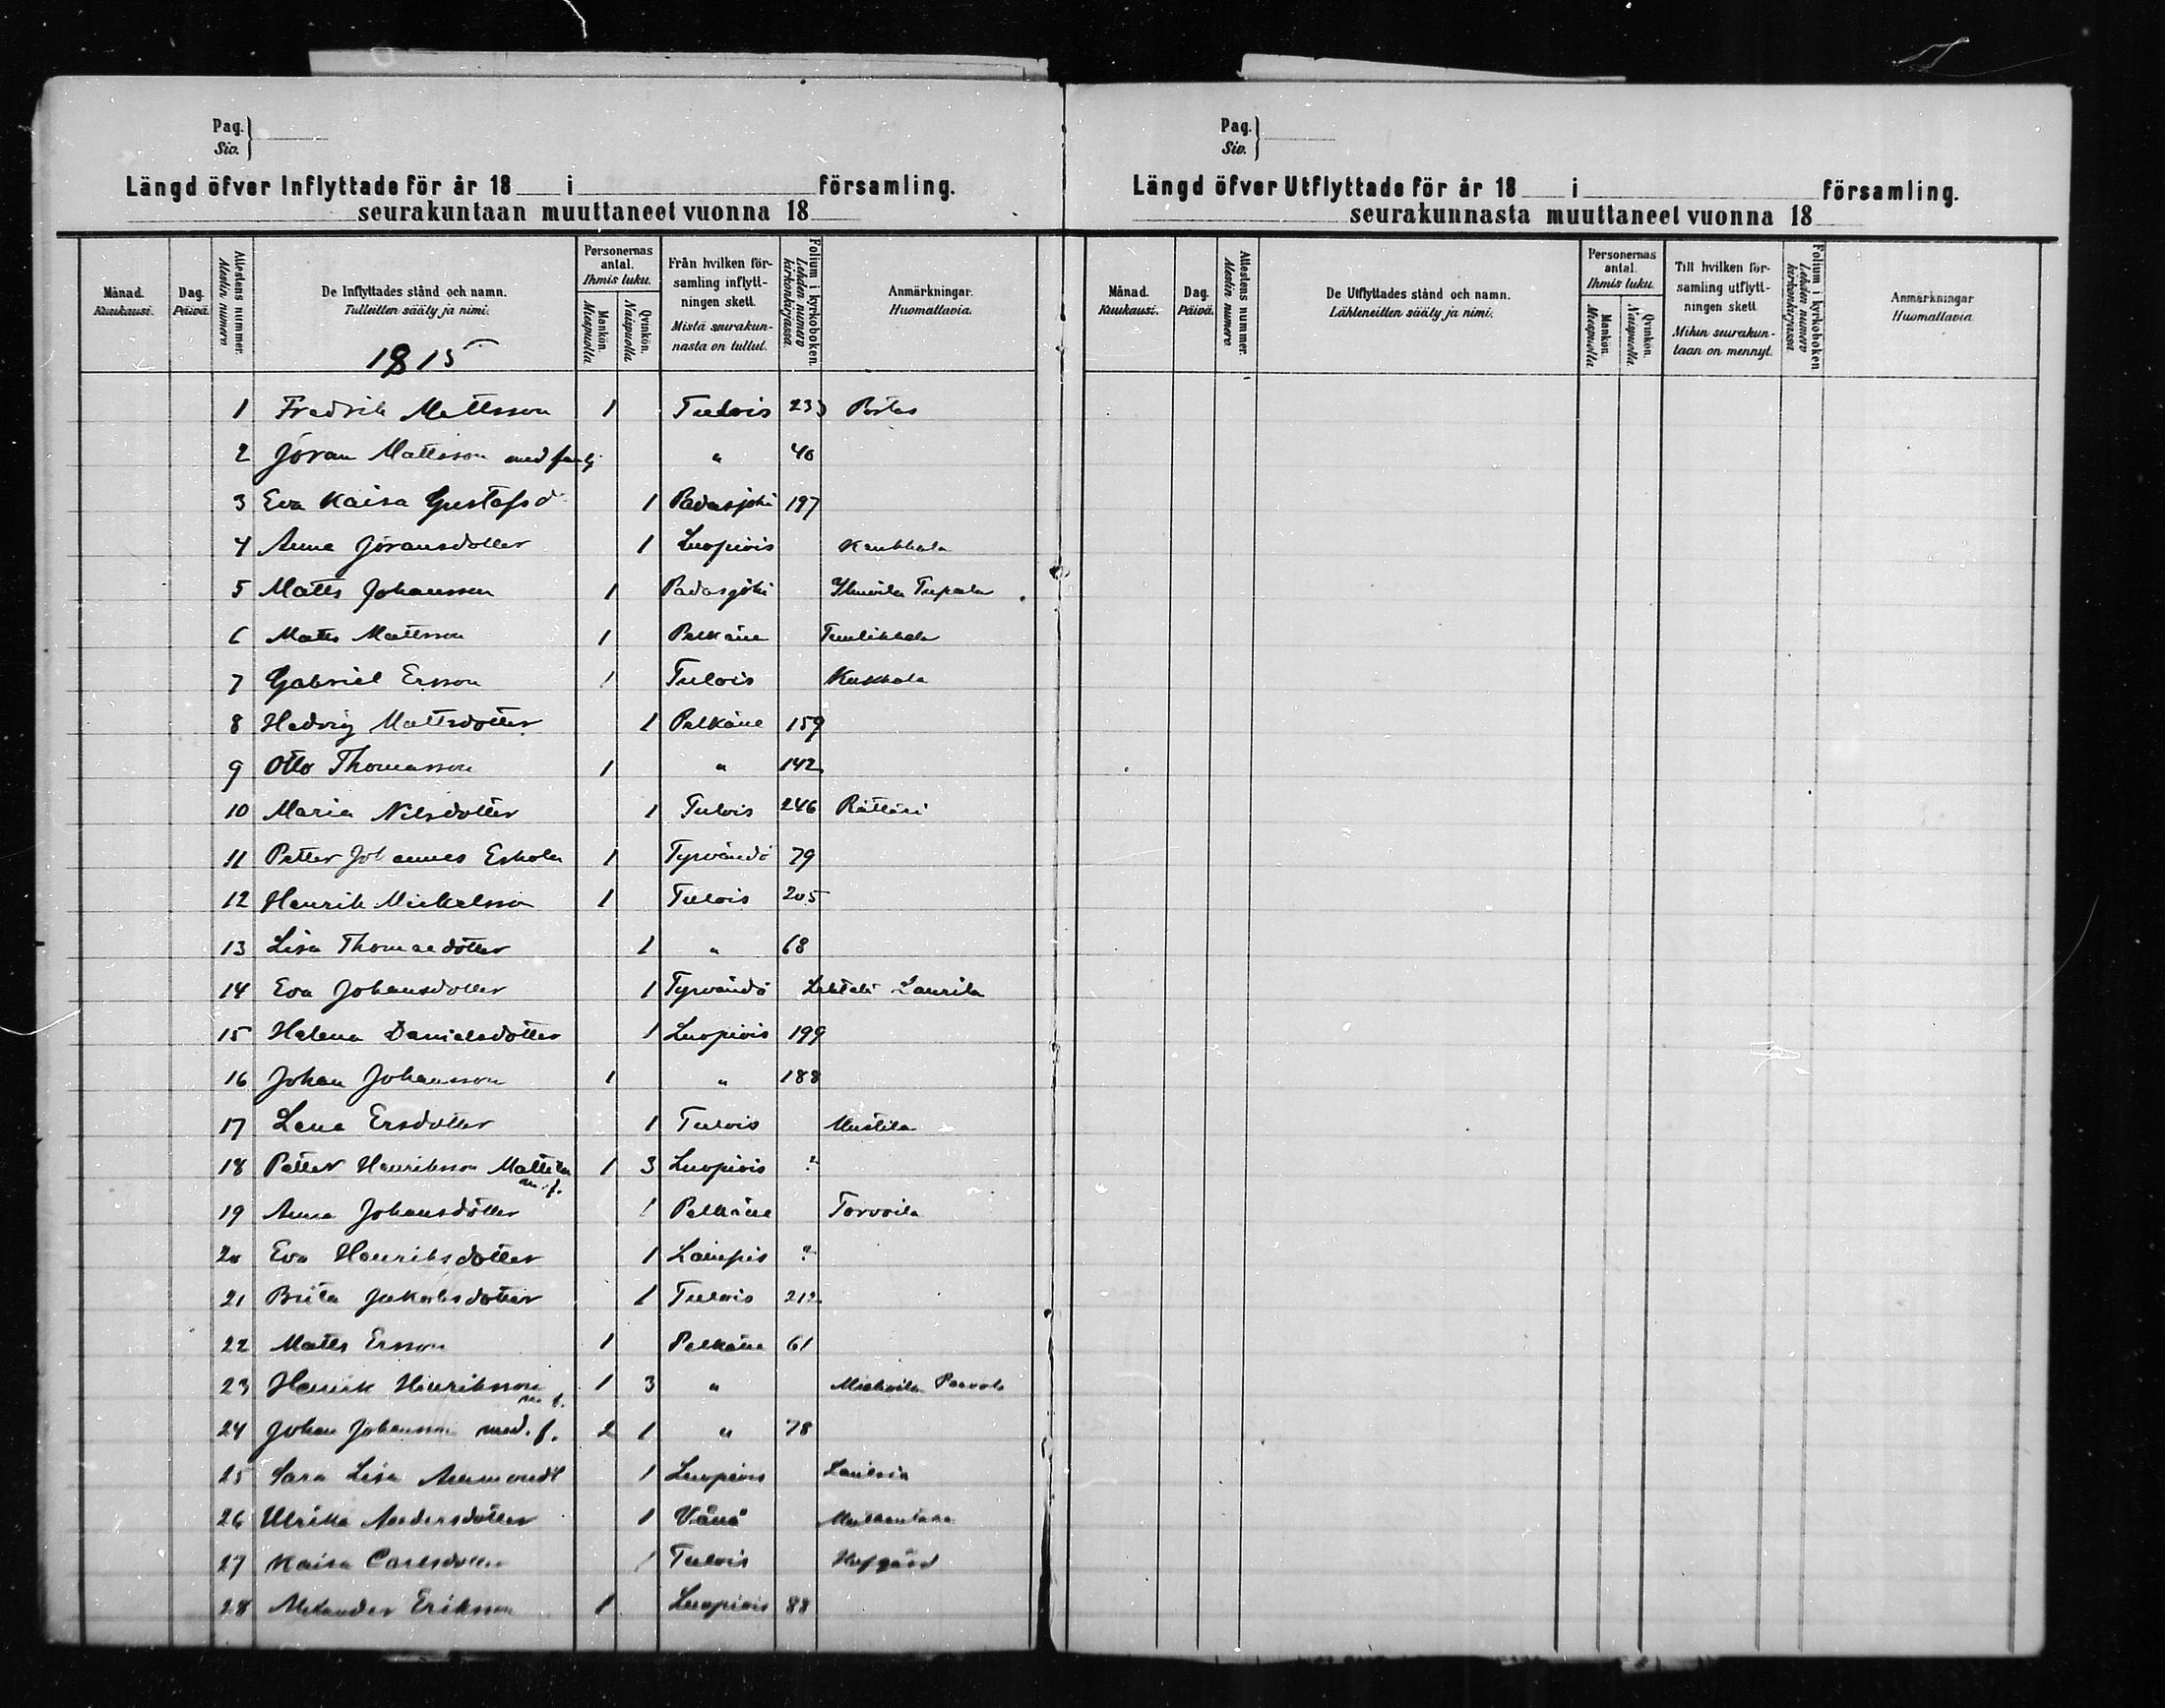 Pag.
Siv.
Längd öfver Inflyttade för år 18 i församling.
seurakuntaan muuttaneet vuonna 18
Månad.
Kuukausi.
Dag.
Päivä.
Attestens nummer.
Atestin numero
De Inflyttades stånd och namn.
Tulleitten sääty ja nimi.
1815
Personernas
antal.
Ihmis luku.
Mankön.
Miespuolia
Qvinkön.
Naispuolia
Från hvilken för-
samling inflytt-
ningen skett.
Mistä seurakun-
nasta on tullut.
Folium i kyrkoboken
Lehden numero
kirkonkirjassa.
Anmärkningar.
Huomattavia.
1 Fredrik Mattsson 1 Tulois 233
2 Jöran Mattsson med familj " 46
3 Eva Kaisa Gustafsd 1 Padasjoki 197
4 Anna Jöransdotter 1 Luopiois Kaukkala
5 Matts Johansson 1 Padasjoki
6 Matts Mattsson 1 Pelkäne
7 Gabriel Ersson 1 Tulois Kukkola
8 Hedvig Mattsdotter 1 Pelkäne 159
9 Otto Thomasson 1 " 142
10 Maria Nilsdotter 1 Tulois 246 Rättäri
11 Petter Johannes Eskola 1 Tyrvändö 79
12 Henrik Mickelsson 1 Tulois 205
13 Lisa Thomasdotter 1 " 68
14 Eva Johansdotter 1 Tyrvändö Laurila
15 Helena Danielsdotter 1 Luopiois 199
16 Johan Johansson 1 " 188
17 Lena Ersdotter 1 Tulois Mustila
18 Petter Henriksson Mattila m. f. 1 3 Luopiois ?
19 Anna Johansdotter 1 Pelkäne Torvoila
20 Eva Henriksdotter 1 Lampis ?
21 Brita Jakobsdotter 1 Tulois 212
22 Matts Ersson 1 Pelkäne 61
23 Henrik Henriksson m. f. 1 3 "
24 Johan Johansson med. f. 2 1 " 78
25 Sara Lisa 1 Luopiois
26 Ulrika Andersdotter 1 Vånå
27 Kaisa Carlsdotter 1 Tulois Hofgård
28 Alexander Eriksson 1 Luopiois 88
Pag.
Siv.
Längd öfver Utflyttade för år 18 i församling.
seurakunnasta muuttaneet vuonna 18
Månad.
Kuukausi.
Dag.
Päivä.
Attestens nummer.
Atestin numero
De Utflyttades stånd och namn.
Lähteneitten sääty ja nimi.
Personernas
antal.
Ihmis luku.
Mankön.
Miespuolia
Qvinkön.
Naispuolia.
Till hvilken för-
samling utflytt-
ningen skett.
Mihin seurakun-
taan on mennyt.
Folium i kyrkoboken
Lehden numero
kirkonkirjassa
Anmärkningar
Huomattavia